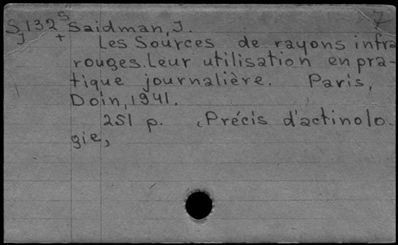 S,132 S Saidman, J. 7
J +
Les Sources de rayons infra
rouges. Leur utilisation en pra-
tique journalière. Paris,
Doin, 1941.
251 p. Précis d'actinolo
gie,